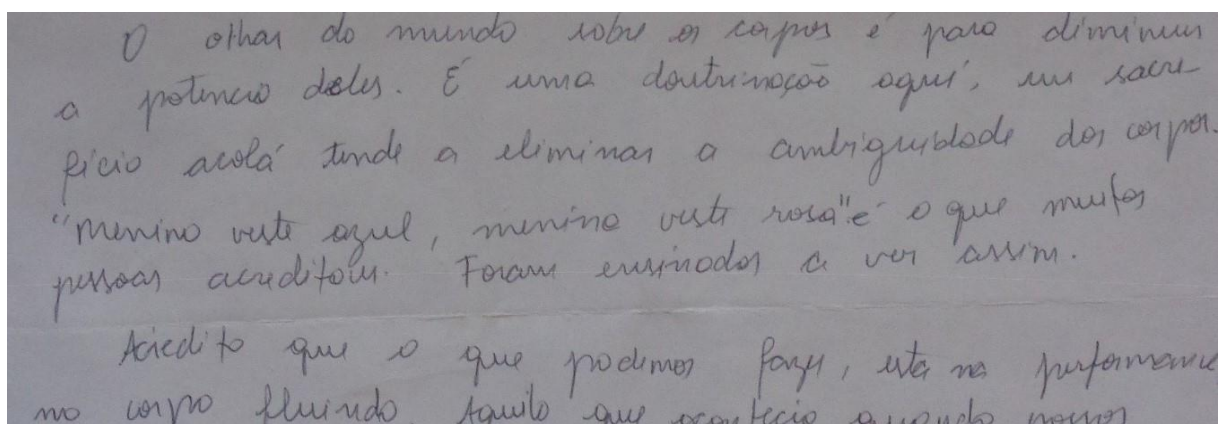 O olhar do mundo sobre os corpos é para diminuir
a potencia deles. É uma doutrinação aqui, um sacri-
fício acolá tende a eliminar a ambiguidade dos corpos.
"Menino veste azul, menina veste rosa" é o que muitas
pessoas acreditam. Foram ensinados a ver assim.
Acredito que o que podemos fazer, está na performance,
no corpo fluindo. Aquilo que acontecia quando nossos